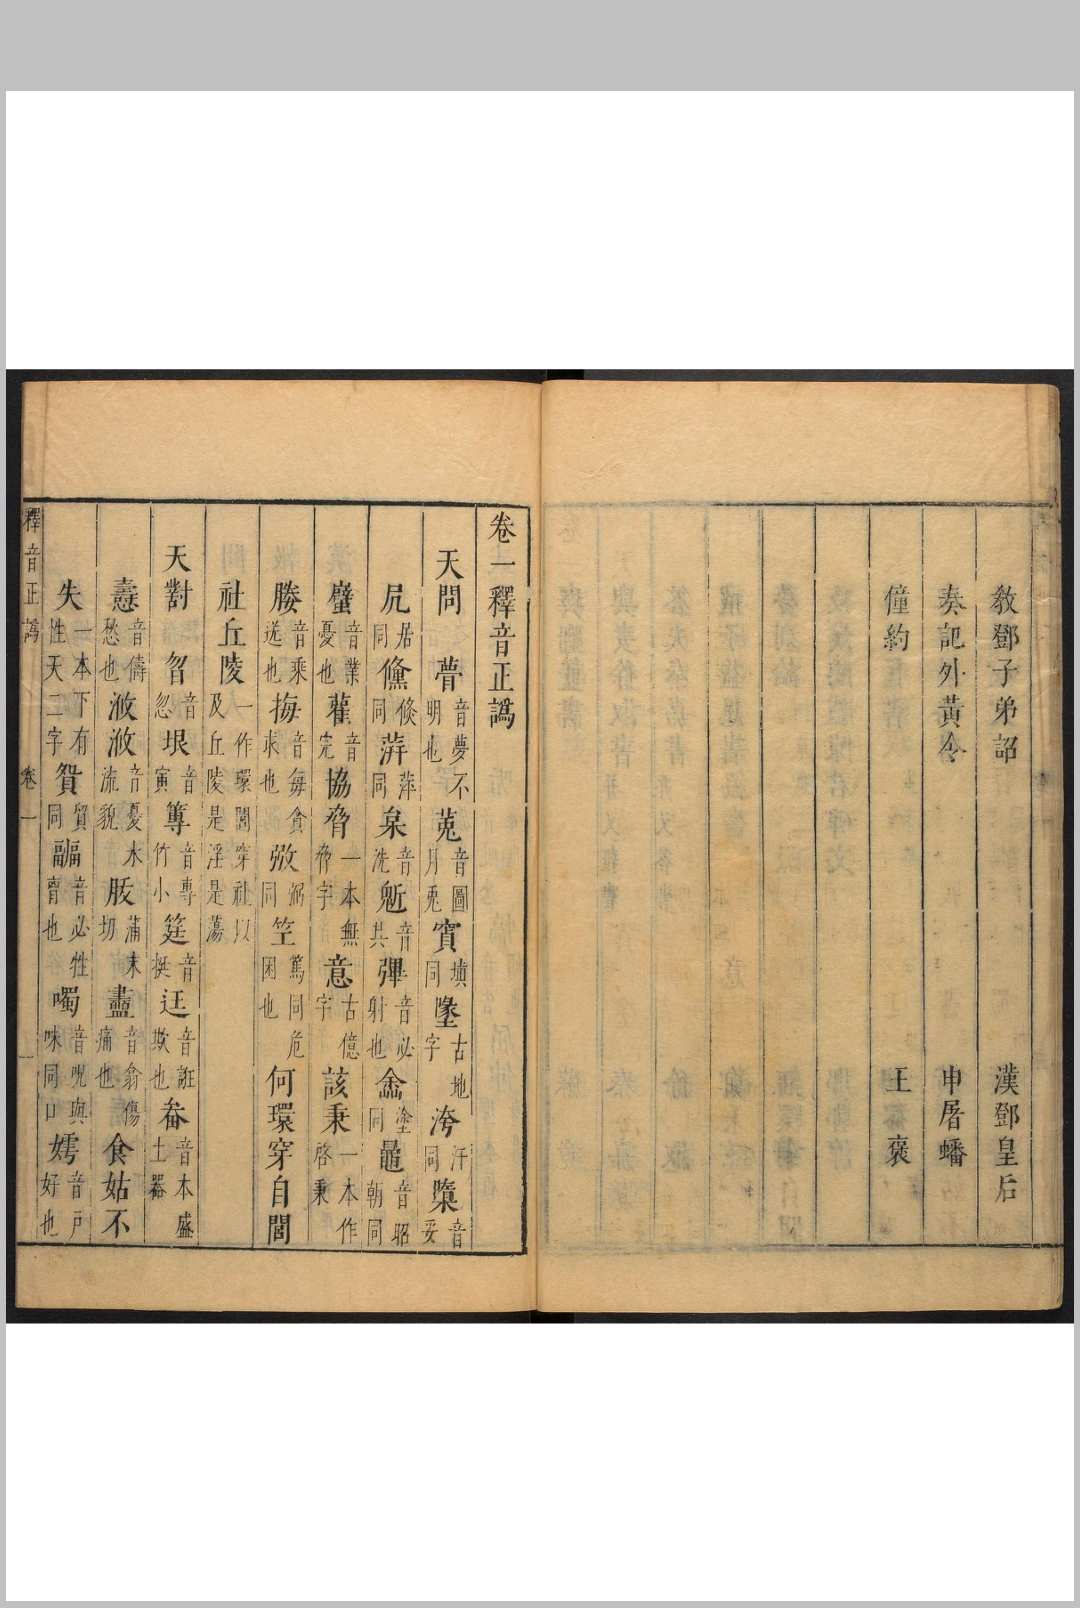 敎鄧子弟詔 漢鄧皇后
奏記外黃令 申屠蟠
僮約 王褒
卷一釋音正譌
天問 瞢 音夢不明也 菟 音圖月兎 窴 墳同 墬 古地字 洿 汗同 隳 音妥
凥 居同 儵 倐同 蓱 萍同 音洗 音共 彈 音必射也 嵞 塗同 鼂 音昭朝同
音業憂也 雚 音完 協脅 一本無脅字 意 古億字 該秉 一本作啓秉
媵 音乘送也 挴 音每貪求也 弜 弼同 竺 篤同危困也 何環穿自閭
社丘陵 一作環閭穿社以及丘陵是淫是蕩
天對 曶 音忽 垠 音寅 篿 音專小竹 筳 音挺 迋 音誑欺也 畚 音本盛土器
燾 音儔愁也 浟浟 音憂水流貌 胈 蒲末切 衋 音翕傷痛也 食姑不
失 一本下有性天二字 貿 貿同 疈 音必牲膏也 噣 音呪與味同口 嫮 音戶好也
釋音正譌 卷一 一